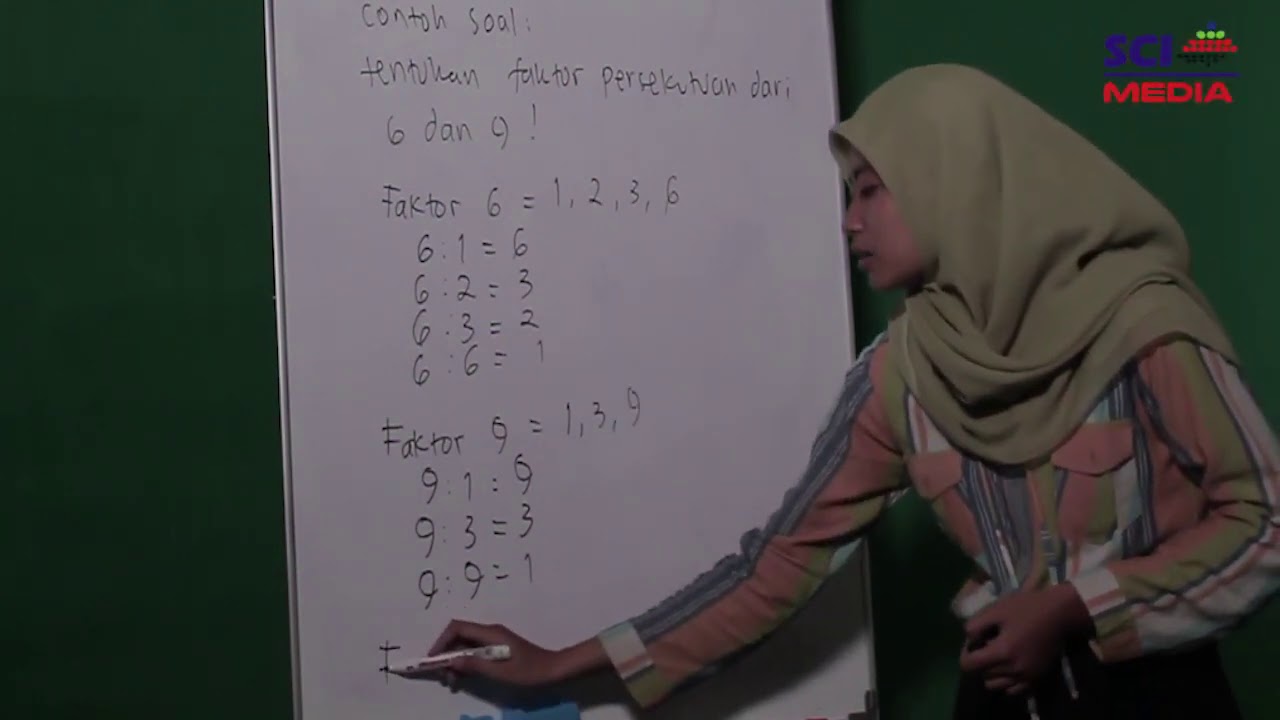 Contoh soal:
tentukan faktor persekutuan dari
6 dan 9 !
Faktor 6 = 1, 2, 3, 6
6 : 1 = 6
6 : 2 = 3
6 : 3 = 2
6 : 6 = 1
Faktor 9 = 1, 3, 9
9 : 1 = 9
9 : 3 = 3
9 : 9 = 1
F
SCI
MEDIA